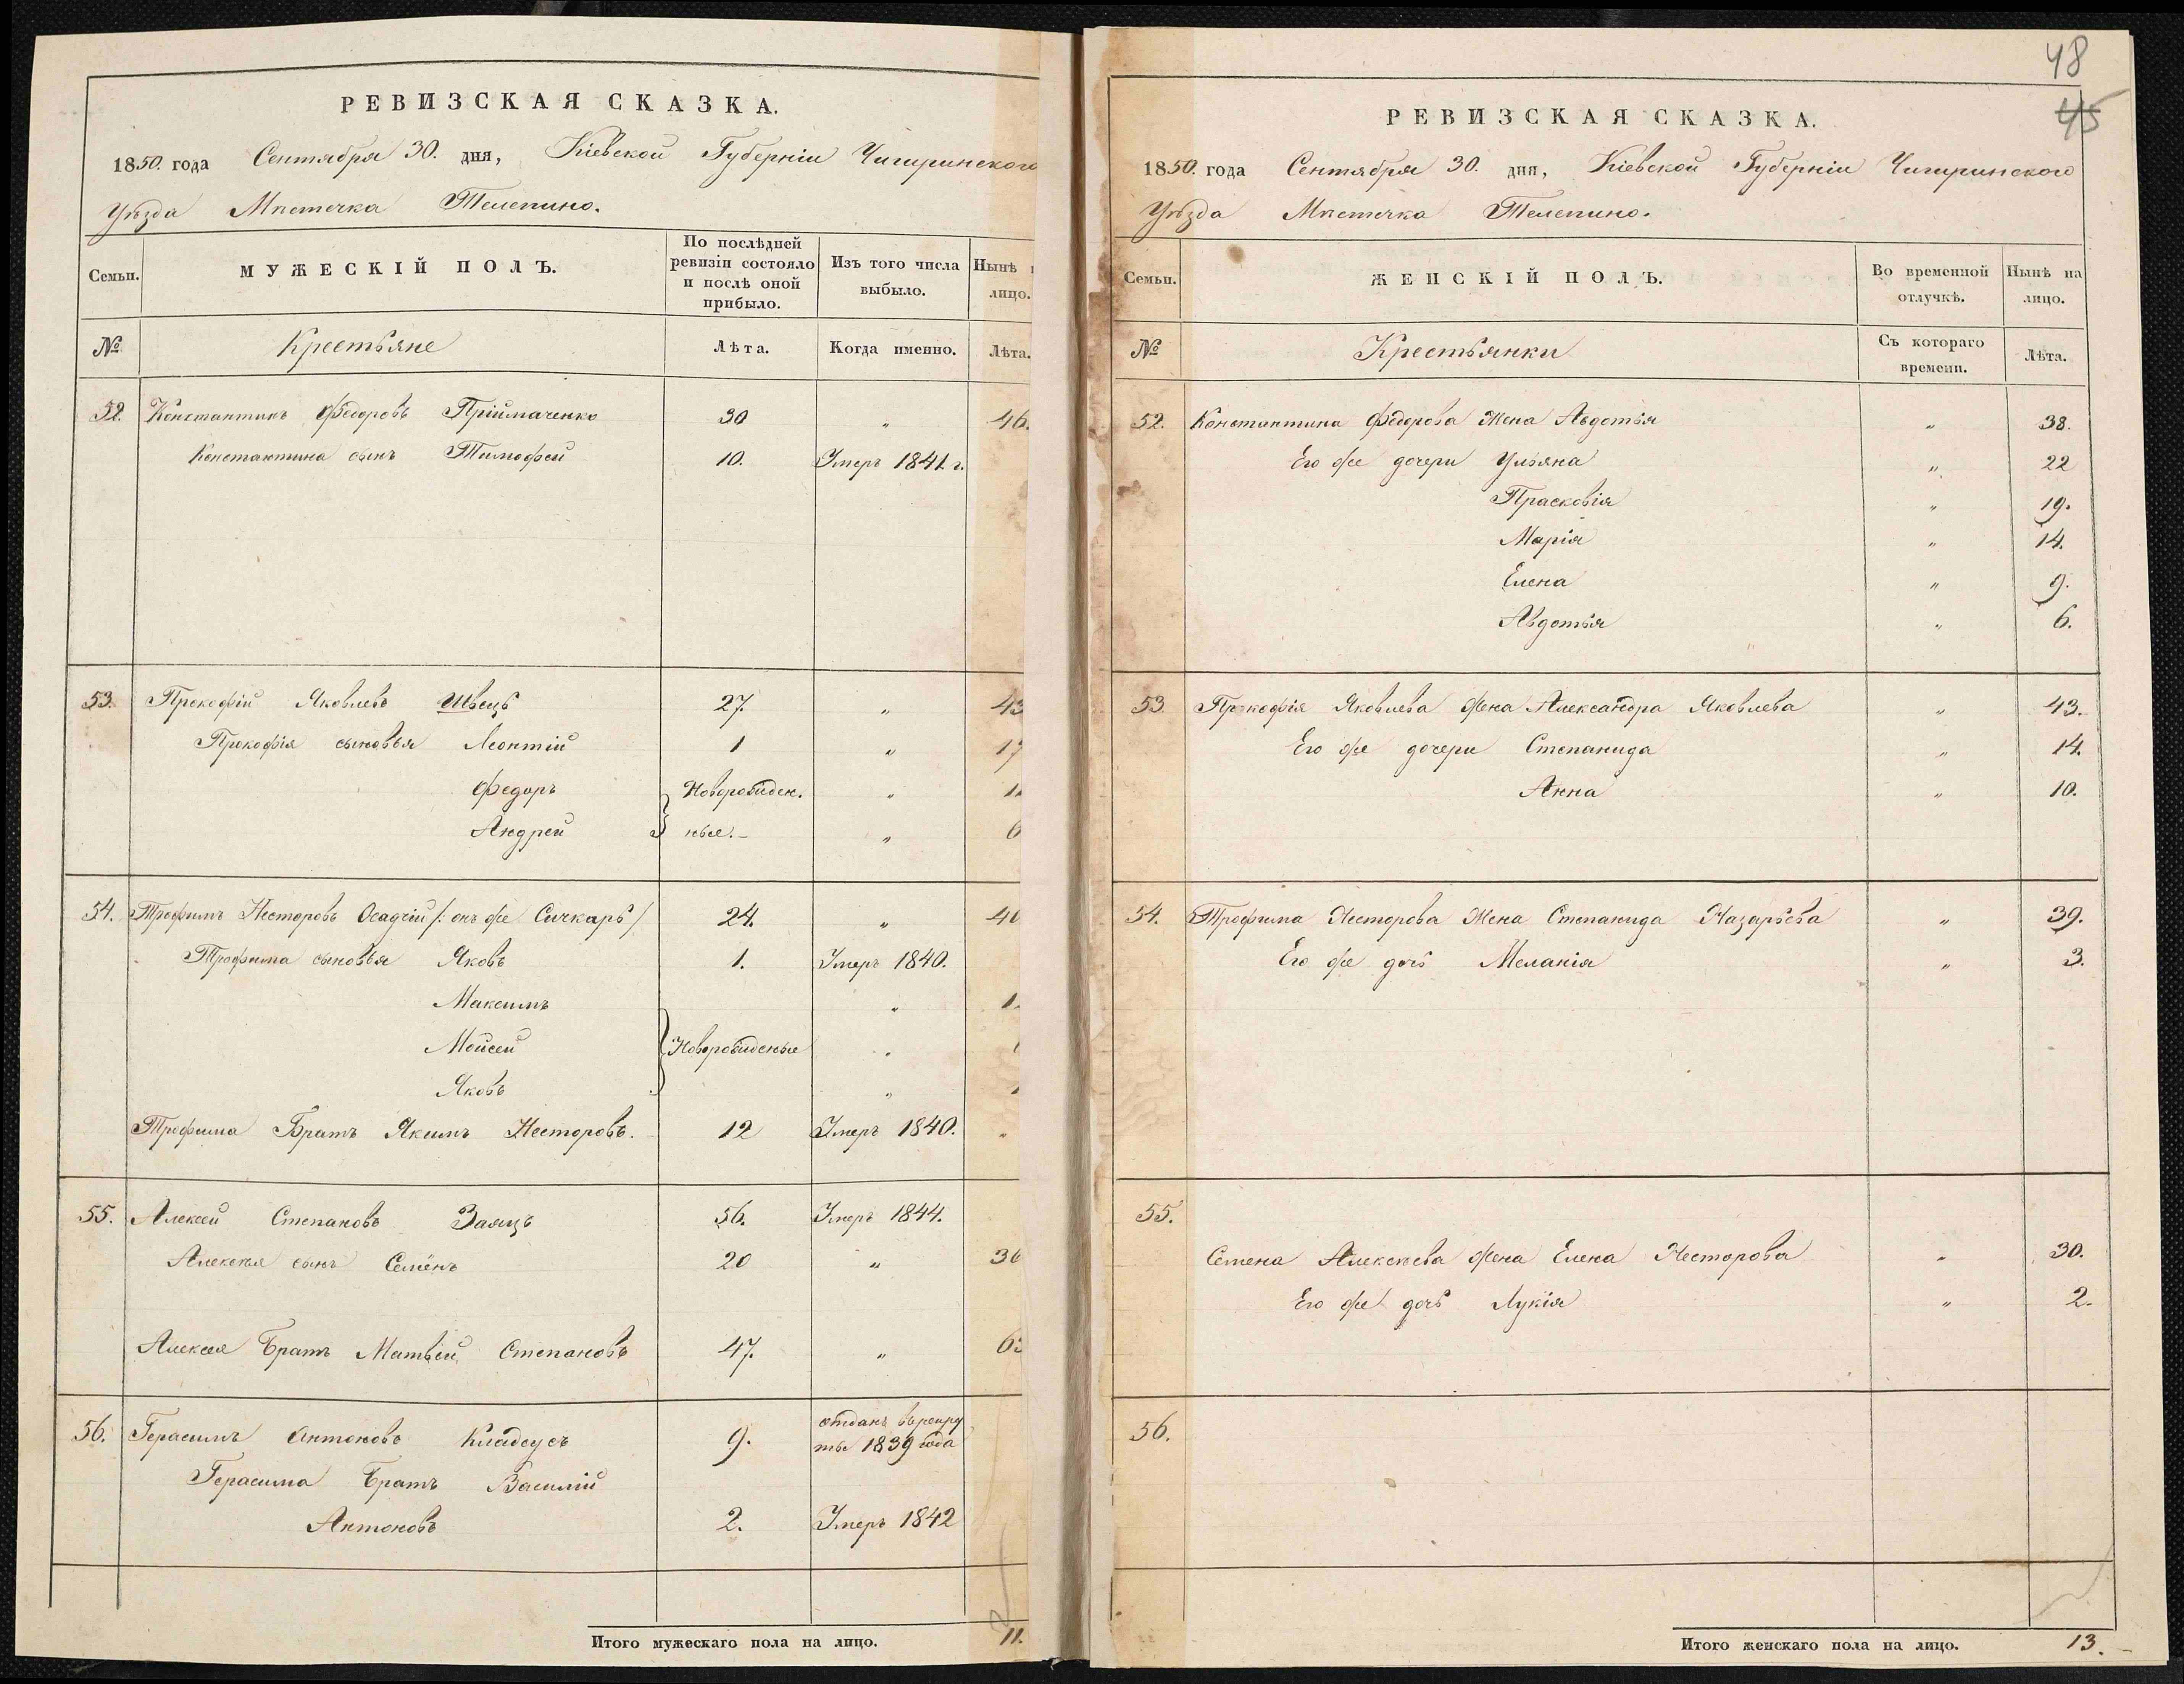 РЕВИЗСКАЯ СКАЗКА.
1850. года Сентября 30. дня, Кіевской Губерніи Чигиринского
Уѣзда Мѣстечка Телепино.
Семьи. МУЖЕСКІЙ ПОЛЪ. По послѣдней ревизіи состояло и послѣ оной прибыло. Изъ того числа выбыло. Нынѣ лицо.
№ Крестьяне Лѣта. Когда именно. Лѣта.
52. Константинъ Федоровъ Пріймаченко 30 " 46.
Константина сынъ Тимофей 10. Умеръ 1841. г.
53. Прокофій Яковлевъ Швецъ 27. " 43
Прокофія сыновья Леонтій 1 " 17
Федоръ Новорожден. "
Андрей ные. " 6
54. Трофимъ Несторовъ Осадчій /: онъ же Сичкарь / 24. " 40
Трофима сыновья Яковъ 1. Умеръ 1840.
Максимъ "
Мойсей Новорожденые "
Яковъ "
Трофима Братъ Якимъ Несторовъ. 12 Умеръ 1840. "
55. Алексей Степановъ Заяцъ 56. Умеръ 1844.
Алексѣя сынъ Семёнъ 20 " 36
Алексея Братъ Матвѣй Степановъ 47. " 63
56. Герасимъ Антоновъ Кладеусъ 9. отданъ врекру
ты 1839 года
Герасима Братъ Василій
Антоновъ 2. Умеръ 1842
Итого мужескаго пола на лицо. 11.
48
45
РЕВИЗСКАЯ СКАЗКА.
1850. года Сентября 30. дня, Кіевской Губерніи Чигиринского
Уѣзда Мѣстечка Телепино.
Семьи. ЖЕНСКІЙ ПОЛЪ. Во временной отлучкѣ. Нынѣ на лицо.
№ Крестьянки Съ котораго времени. Лѣта.
52. Константина Федорова Жена Авдотья " 38.
Его же дочери Ульяна " 22
Прасковія " 19.
Марія " 14.
Елена " 9.
Авдотья " 6.
53 Прокофія Яковлева жена Александра Яковлева " 43.
Его же дочери Степанида " 14.
Анна " 10.
54. Трофима Несторова Жена Степанида Назарьева " 39.
Его же дочь Меланія " 3.
55.
Семена Алексѣева жена Елена Несторова " 30.
Его же дочь Лукія " 2.
56.
Итого женскаго пола на лицо. 13.